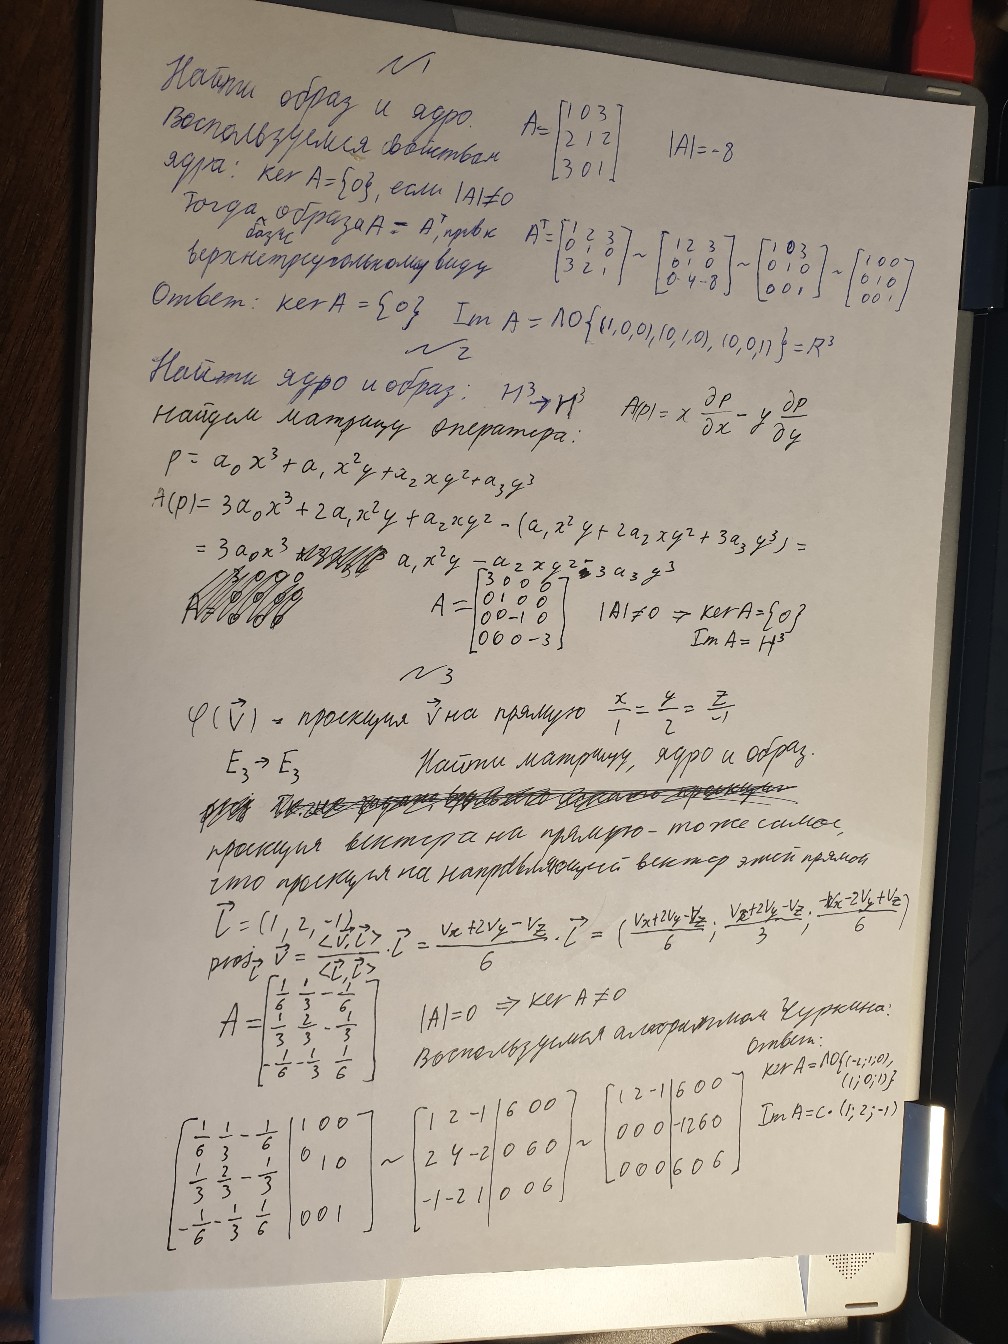 №1
Найти образ и ядро.
A = [1 0 3; 2 1 2; 3 0 1] |A| = -8
Воспользуемся свойством
ядра: ker A = {0}, если |A| ≠ 0
Тогда базис образа A = A^T, прив к
верхнетреугольному виду
A^T = [1 2 3; 0 1 0; 3 2 1] ~ [1 2 3; 0 1 0; 0 -4 -8] ~ [1 0 3; 0 1 0; 0 0 1] ~ [1 0 0; 0 1 0; 0 0 1]
Ответ: ker A = {0} Im A = ЛО{(1,0,0), (0,1,0), (0,0,1)} = R^3
№2
Найти ядро и образ: H^3 → H^3 A(p) = x ∂P/∂x - y ∂P/∂y
Найдем матрицу оператора:
p = a₀x³ + a₁x²y + a₂xy² + a₃y³
A(p) = 3a₀x³ + 2a₁x²y + a₂xy² - (a₁x²y + 2a₂xy² + 3a₃y³) =
= 3a₀x³ a₁x²y - a₂xy² - 3a₃y³
A = [3 0 0 0; 0 1 0 0; 0 0 -1 0; 0 0 0 -3] |A| ≠ 0 ⇒ ker A = {0}
Im A = H^3
№3
φ(v⃗) - проекция v⃗ на прямую x/1 = y/2 = z/-1
E₃ → E₃ Найти матрицу, ядро и образ.
проекция вектора на прямую - тоже самое,
что проекция на направляющий вектор этой прямой
l⃗ = (1, 2, -1)
proj_l⃗ v⃗ = <v⃗, l⃗>/<l⃗, l⃗> · l⃗ = (Vx + 2Vy - Vz)/6 · l⃗ = ((Vx + 2Vy - Vz)/6; (Vx + 2Vy - Vz)/3; (-Vx - 2Vy + Vz)/6)
A = [1/6 1/3 -1/6; 1/3 2/3 -1/3; -1/6 -1/3 1/6] |A| = 0 ⇒ ker A ≠ 0
Воспользуемся алгоритмом Чуркина:
[1/6 1/3 -1/6 | 1 0 0; 1/3 2/3 -1/3 | 0 1 0; -1/6 -1/3 1/6 | 0 0 1] ~ [1 2 -1 | 6 0 0; 2 4 -2 | 0 6 0; -1 -2 1 | 0 0 6] ~ [1 2 -1 | 6 0 0; 0 0 0 | -12 6 0; 0 0 0 | 6 0 6]
Ответ:
ker A = ЛО{(-2;1;0),
(1;0;1)}
Im A = c·(1; 2; -1)